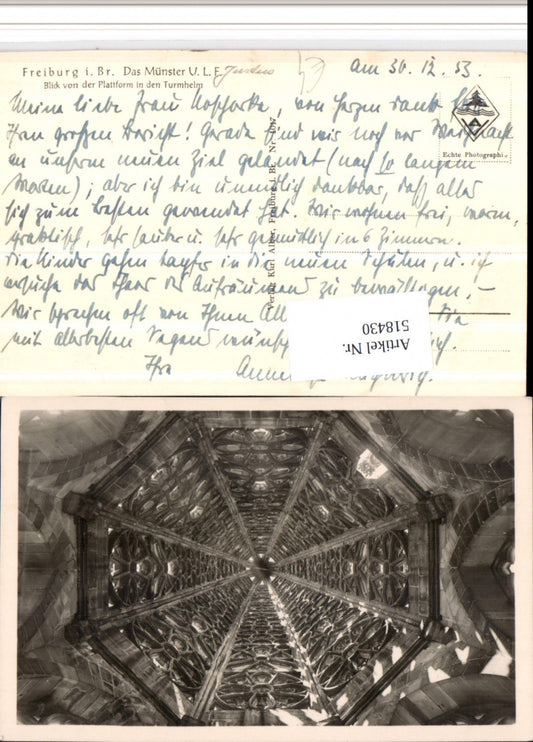 Freiburg i. Br. Das Münster U. L. F.
Blick von der Plattform in den Turmhelm
am 30. 12. 53.
Meine liebe Frau, von Herzen Dank für
Ihren großen Bericht! Gerade sind wir noch vor Weihnacht
an unserm neuen Ziel gelandet (nach langem
Warten); aber ich bin unendlich dankbar, daß alles
sich zum Besten gewendet hat. Wir wohnen frei, warm,
praktisch, sehr sauber u. sehr gemütlich in 6 Zimmern.
Die Kinder gehen tapfer in die neuen Schulen, u. ich
versuche das Chaos des Aufräumens zu bewältigen. –
Wir sprechen oft von Ihnen
mit allerbesten
Ihre
Echte Photographie
Verlag Karl Alber, Freiburg i. Br.
Artikel Nr.
518430